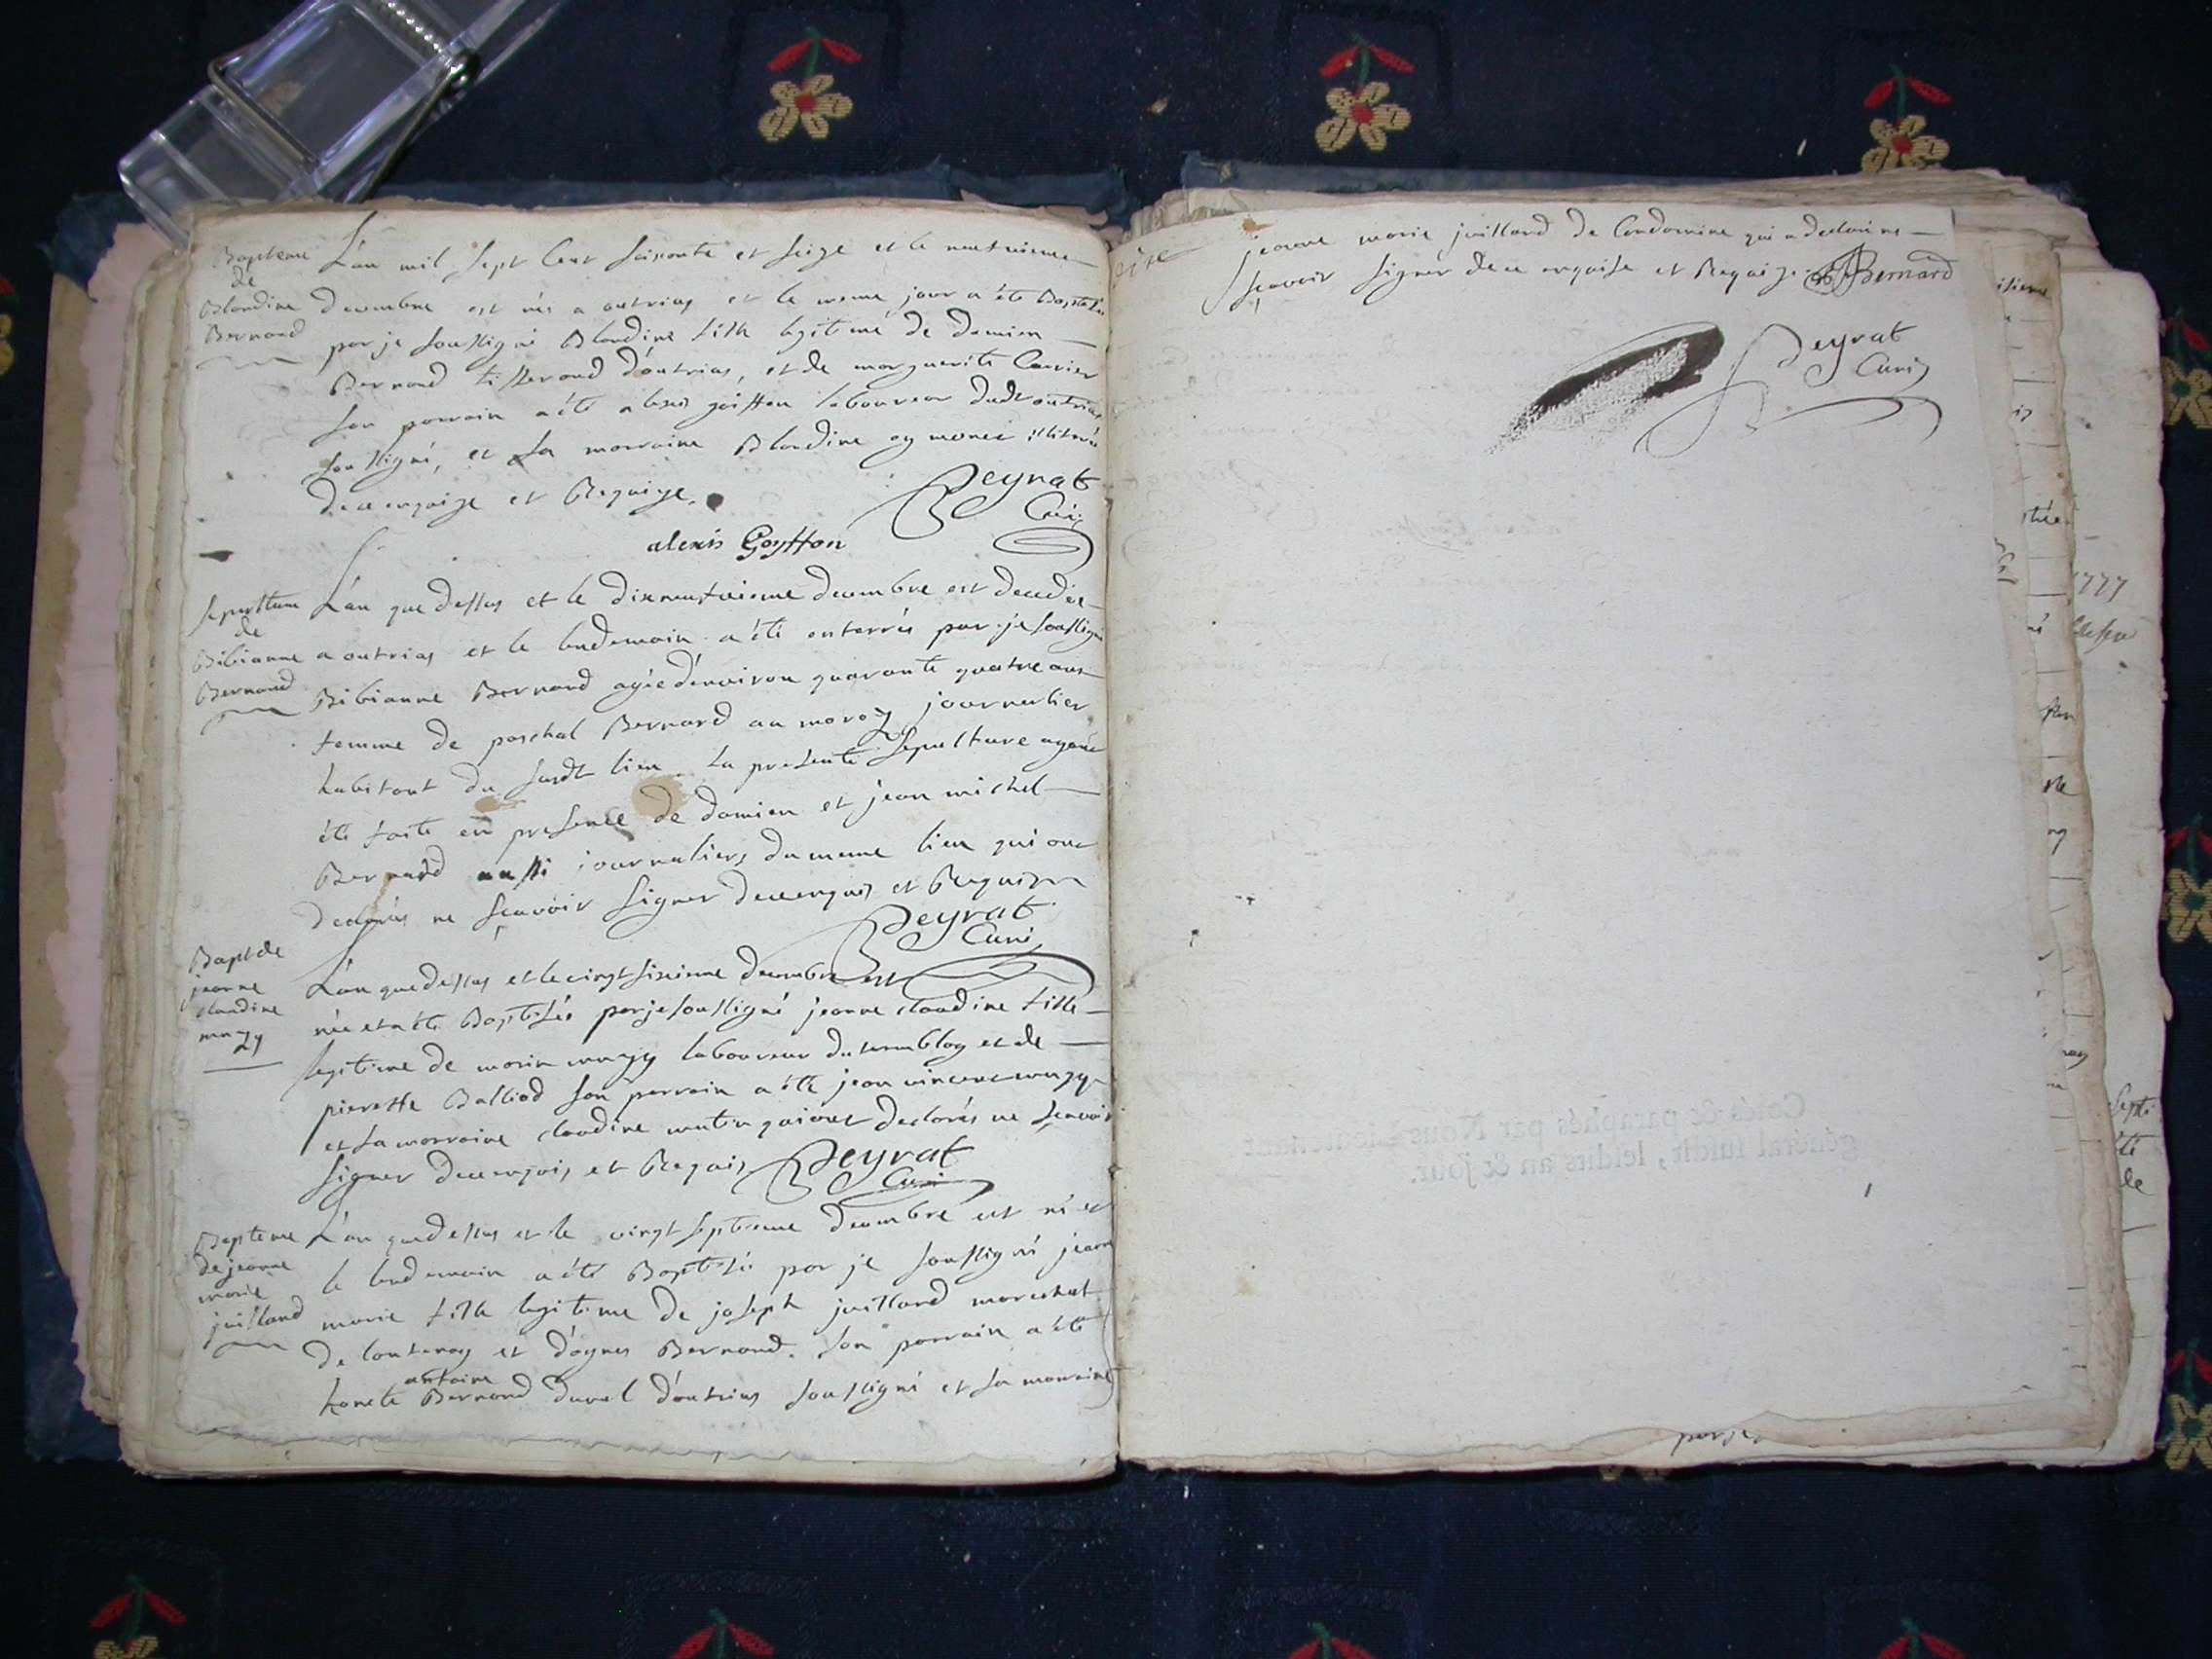 Bapteme
de
Blandine
Bernard
L'an mil sept cent soisonte et seize et le neufvieme
decembre est née a outrias et le meme jour a été Baptisée
par je soussigné Blandine fille legitime de damien
Bernard tisserand d'outrias, et de marguerite Carrier
son parrain a été alexis goiffon laboureur dudt outrias
soussigné, et sa marraine Blandine illiterée
de ce enquise et Requise.
Peyrat
Curé
alexis Goyffon
sepulture
de
Bibianne
Bernard
L'an que dessus et le dixneufvieme decembre est decedée
a outrias et le lendemain a été enterrée par je soussigné
Bibianne Bernard agée d'environ quarante quatre ans
femme de paschal Bernard au maroz journalier
habitant du susdt lieu la presente sepulture ayant
été faite en presence de damien et jean michel
Bernard aussi journaliers du meme lieu qui ont
declarés ne sçavoir signer de ce enquis et Requis
Peyrat
Curé
Bapt de
jeanne
claudine
mugy
L'an que dessus et le vingt sixieme decembre est
née et a été Baptisée par je soussigné jeanne claudine fille
legitime de marin mugy laboureur du tremblay et de
pierette Balliod son parrain a été jean vincent mugy
et sa marraine claudine qui ont declarés ne sçavoir
signer de ce enquis et Requis
Peyrat
Curé
Bapteme
de jeanne
marie
juilland
L'an que dessus et le vingt septieme decembre est né et
le lendemain a été Baptisée par je soussigné jeanne
marie fille legitime de joseph juilland marechat
de lontenay et d'agnes Bernard. son parrain a été
antoine
honete Bernard duval d'outrias soussigné et sa marraine
jeanne marie juilland de Condamine qui a declaré ne
sçavoir signer de ce enquise et Requize Bernard
Peyrat
Curé
1777
Cotés & paraphés par Nous Lieutenant
général susdit, lesdits an & jour.
par je